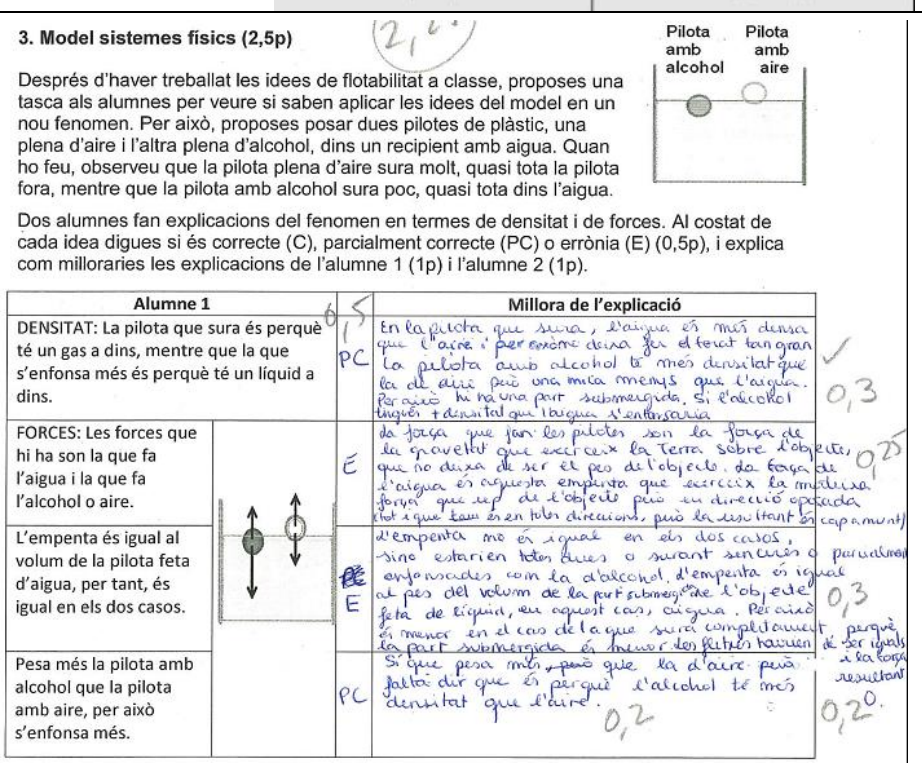 3. Model sistemes físics (2,5p)
Pilota amb alcohol
Pilota amb aire
Després d'haver treballat les idees de flotabilitat a classe, proposes una
tasca als alumnes per veure si saben aplicar les idees del model en un
nou fenomen. Per això, proposes posar dues pilotes de plàstic, una
plena d'aire i l'altra plena d'alcohol, dins un recipient amb aigua. Quan
ho feu, observeu que la pilota plena d'aire sura molt, quasi tota la pilota
fora, mentre que la pilota amb alcohol sura poc, quasi tota dins l'aigua.
Dos alumnes fan explicacions del fenomen en termes de densitat i de forces. Al costat de
cada idea digues si és correcte (C), parcialment correcte (PC) o errònia (E) (0,5p), i explica
com milloraries les explicacions de l'alumne 1 (1p) i l'alumne 2 (1p).
Alumne 1
Millora de l'explicació
DENSITAT: La pilota que sura és perquè
té un gas a dins, mentre que la que
s'enfonsa més és perquè té un líquid a
dins.
PC
En la pilota que sura, l'aigua és més densa
que l'aire i per
La pilota amb alcohol té més densitat que
la de aire però una mica menys que l'aigua.
Per això hi ha una part submergida. Si l'alcohol
tingués + densitat que l'aigua s'enfonsaria
0,3
FORCES: Les forces que
hi ha son la que fa
l'aigua i la que fa
l'alcohol o aire.
E
La força que fan les pilotes son la força de
la gravetat que exerceix la Terra sobre l'objecte,
que no deixa de ser el pes de l'objecte. La força de
l'aigua és aquesta empenta que exerceix la mateixa
força que rep de l'objecte però en direcció oposada
(tot i que també en totes direccions, però la resultant és cap amunt)
0,25
L'empenta és igual al
volum de la pilota feta
d'aigua, per tant, és
igual en els dos casos.
E
L'empenta no és igual en els dos casos,
sino estarien totes dues o surant senceres o parcialment
enfonsades com la d'alcohol. L'empenta és igual
al pes del volum de la part submergida de l'objecte
feta de líquid, en aquest cas, aigua. Per això
és menor en el cas de la que sura completament perquè
la part submergida és menor. Les fletxes haurien de ser iguals
i la força
resultant
0.
0,3
Pesa més la pilota amb
alcohol que la pilota
amb aire, per això
s'enfonsa més.
PC
Si que pesa més, però que la d'aire però
falta dir que és perquè l'alcohol té més
densitat que l'aire.
0,2
0,2